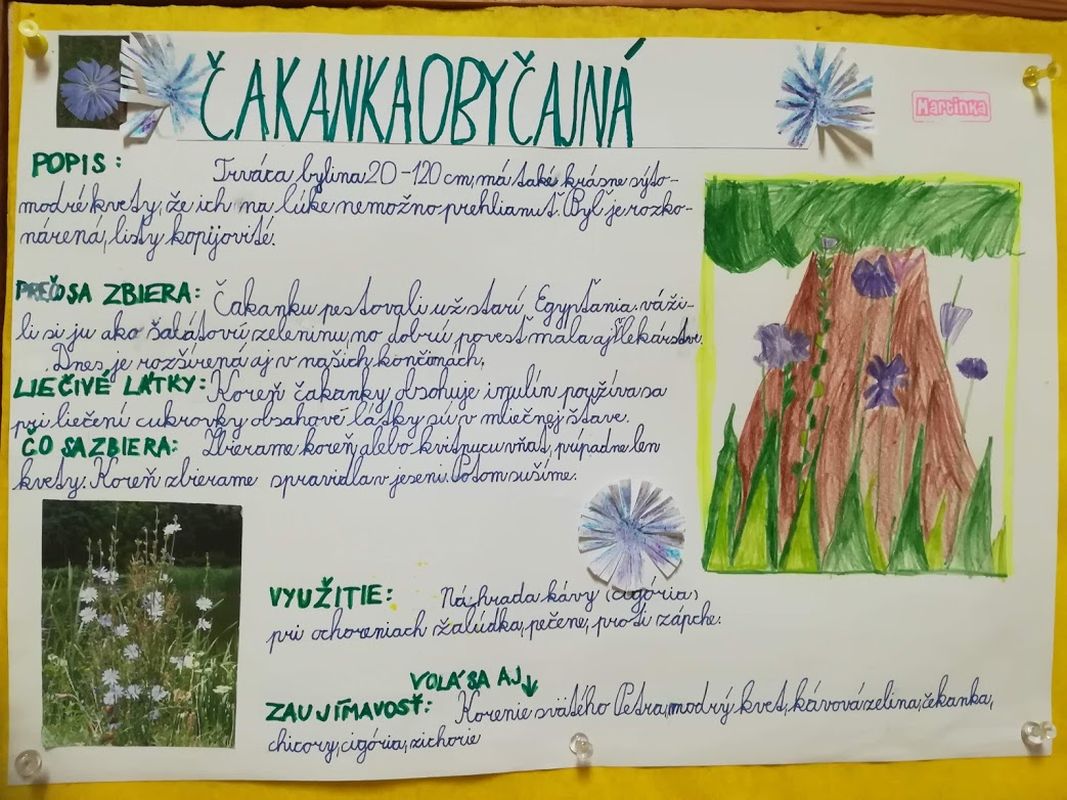 ČAKANKA OBYČAJNÁ
Martinka
POPIS: Trváca bylina 20-120 cm, má také krásne sýto-
modré kvety, že ich na lúke nemožno prehliadnuť. Byľ je rozko-
nárená, listy kopijovité.
PREČO SA ZBIERA: Čakanku pestovali už starí Egypťania. váži-
li si ju ako šalátovú zeleninu, no dobrú povesť mala aj v lekárstve.
Dnes je rozšírená aj v našich končinách.
LIEČIVÉ LÁTKY: Koreň čakanky obsahuje inulín používa sa
pri liečení cukrovky obsahové látky sú v mliečnej šťave.
ČO SA ZBIERA: Zbierame koreň, alebo kvitnucu vňať, prípadne len
kvety. Koreň zbierame spravidla v jeseni. Potom sušíme.
VYUŽITIE: Náhrada kávy (cigória)
pri ochoreniach žalúdka, pečene, proti zápche.
VOLÁ SA AJ
ZAUJÍMAVOSŤ: Korenie svätého Petra, modrý kvet, kávová zelina, čekanka,
chicory, cigória, zichorie